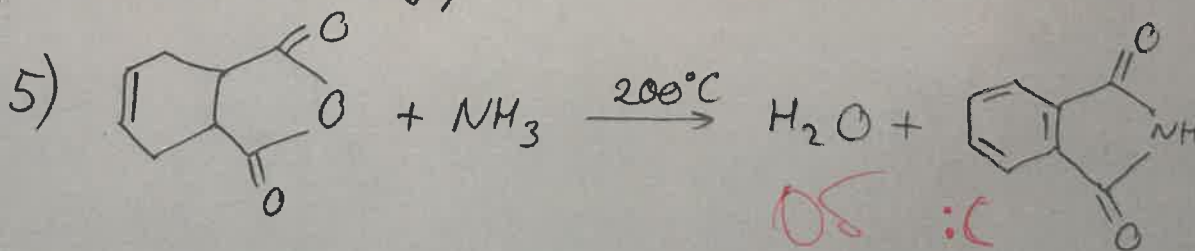 5) O O O + NH₃ 200°C → H₂O + O NH O
Oб :C